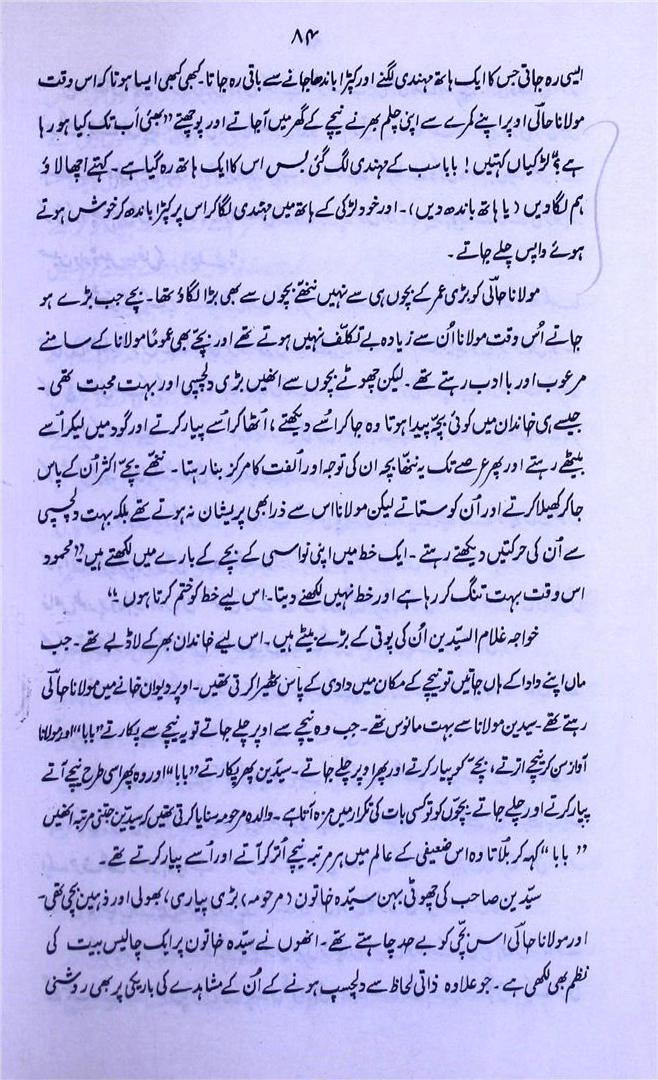 ۸۴
ایسی رہ جاتی جس کا ایک ہاتھ مہندی لگنے اور کپڑا باندھا جانے سے باقی رہ جاتا۔ کبھی کبھی ایسا ہوتا کہ اس وقت
مولانا حالؔی اوپر اپنے کمرے سے اپنی چلم بھرنے نیچے کے گھر میں آ جاتے اور پوچھتے ”بھئی اَب تک کیا ہو رہا
ہے؟“ لڑکیاں کہتیں! بابا سب کے مہندی لگ گئی بس اس کا ایک ہاتھ رہ گیا ہے۔ کہتے اچھا لاؤ
ہم لگا دیں (یا ہاتھ باندھ دیں)۔ اور خود لڑکی کے ہاتھ میں مہندی لگا کر اس پر کپڑا باندھ کر خوش ہوتے
ہوئے واپس چلے جاتے۔
مولانا حالؔی کو بڑی عمر کے بچوں ہی سے نہیں ننھے بچوں سے بھی بڑا لگاؤ تھا۔ بچے جب بڑے ہو
جاتے اُس وقت مولانا اُن سے زیادہ بے تکلّف نہیں ہوتے تھے اور بچے بھی عموماً مولانا کے سامنے
مرعوب اور با ادب رہتے تھے۔ لیکن چھوٹے بچوں سے انھیں بڑی دلچسپی اور بہت محبت تھی۔
جیسے ہی خاندان میں کوئی بچہ پیدا ہوتا وہ جا کر اُسے دیکھتے، اُٹھا کر اُسے پیار کرتے اور گود میں لیکر اُسے
بیٹھے رہتے اور پھر عرصے تک یہ ننھا بچہ ان کی توجہ اور اُلفت کا مرکز بنا رہتا۔ ننھے بچّے اکثر اُن کے پاس
جا کر کھیلا کرتے اور اُن کو ستاتے لیکن مولانا اس سے ذرا بھی پریشان نہ ہوتے تھے بلکہ بہت دلچسپی
سے اُن کی حرکتیں دیکھتے رہتے۔ ایک خط میں اپنی نواسی کے بچے کے بارے میں لکھتے ہیں ”محمود
اس وقت بہت تنگ کر رہا ہے اور خط نہیں لکھنے دیتا۔ اس لیے خط کو ختم کرتا ہوں۔“
خواجہ غلام السیّدین اُن کی پوتی کے بڑے بیٹے ہیں۔ اس لیے خاندان بھر کے لاڈلے تھے۔ جب
ماں اپنے دادا کے ہاں جاتیں تو نیچے کے مکان میں دادی کے پاس ٹھیرا کرتی تھیں۔ اوپر دیوان خانے میں مولانا حالؔی
رہتے تھے۔ سیدین مولانا سے بہت مانوس تھے۔ جب وہ نیچے سے اوپر چلے جاتے تو یہ نیچے سے پکارتے ”بابا“ اور مولانا
آواز سن کر نیچے اترتے، بچّے کو پیار کرتے اور پھر اوپر چلے جاتے۔ سیّدین پھر پکارتے ”بابا“ اور وہ پھر اسی طرح نیچے آتے
پیار کرتے اور چلے جاتے۔ بچّوں کو تو کسی بات کی تکرار میں مزہ آتا ہے۔ والدہ مرحومہ سنایا کرتی تھیں کہ سیدین جتنی مرتبہ انھیں
”بابا“ کہہ کر بلاتا وہ اس ضعیفی کے عالم میں ہر مرتبہ نیچے اُتر کر آتے اور اُسے پیار کرتے تھے۔
سیّدین صاحب کی چھوٹی بہن سیّدہ خاتون (مرحومہ) بڑی پیاری، بھولی اور ذہین بچّی تھی۔
اور مولانا حالؔی اس بچّی کو بے حد چاہتے تھے۔ انھوں نے سیّدہ خاتون پر ایک چالیس بیت کی
نظم بھی لکھی ہے۔ جو علاوہ ذاتی لحاظ سے دلچسپ ہونے کے اُن کے مشاہدے کی باریکی پر بھی روشنی